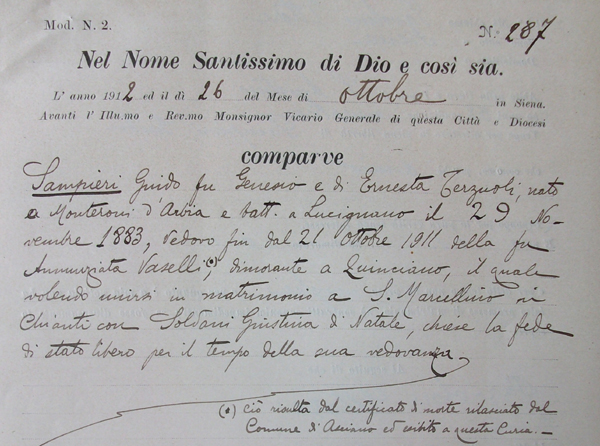 Mod. N. 2.
N. 287
Nel Nome Santissimo di Dio e così sia.
L' anno 1912 ed il dì 26 del Mese di ottobre in Siena.
Avanti l' Illu.mo e Rev.mo Monsignor Vicario Generale di questa Città e Diocesi
comparve
Sampieri Guido fu Genesio e di Ernesta Terzuoli, nato
a Monteroni d'Arbia e batt. a Lucignano il 29 No-
vembre 1883, Vedovo fin dal 21 ottobre 1911 della fu
Annunziata Vaselli(*), dimorante a Quinciano, il quale
volendo unirsi in matrimonio a S. Marcellino in
Chianti con Soldani Giustina di Natale, chiese la fede
di stato libero per il tempo della sua vedovanza.
(*) Ciò risulta dal certificato di morte rilasciato dal
Comune d'Asciano ed esibito a questa Curia. —